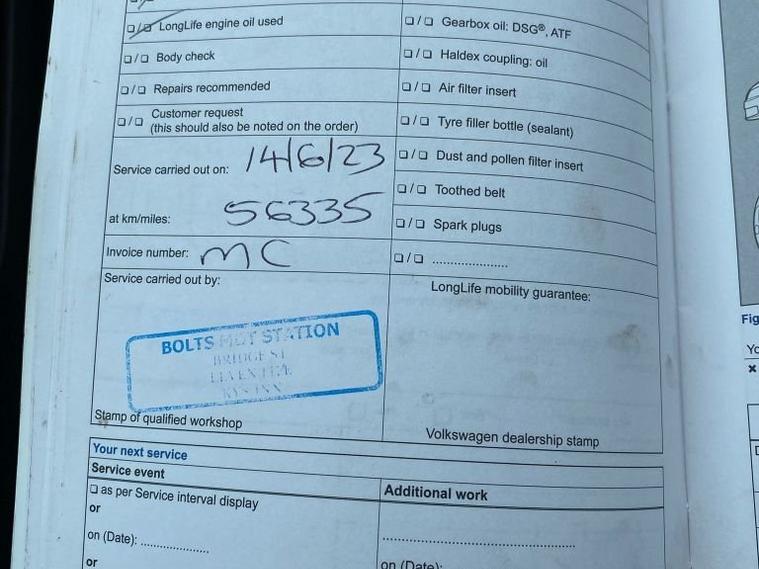 ❏/❏ LongLife engine oil used
❏/❏ Body check
❏/❏ Repairs recommended
❏/❏ Customer request
(this should also be noted on the order)
Service carried out on: 14/6/23
at km/miles: 56335
Invoice number: MC
Service carried out by:
BOLTS MOT STATION
BRIDGE ST
Stamp of qualified workshop
❏/❏ Gearbox oil: DSG®, ATF
❏/❏ Haldex coupling: oil
❏/❏ Air filter insert
❏/❏ Tyre filler bottle (sealant)
❏/❏ Dust and pollen filter insert
❏/❏ Toothed belt
❏/❏ Spark plugs
❏/❏ .....................
LongLife mobility guarantee:
Volkswagen dealership stamp
Your next service
Service event
❏ as per Service interval display
or
on (Date): ...................
or
Additional work
.....................................................
on (Date):
Fig
Yo
×